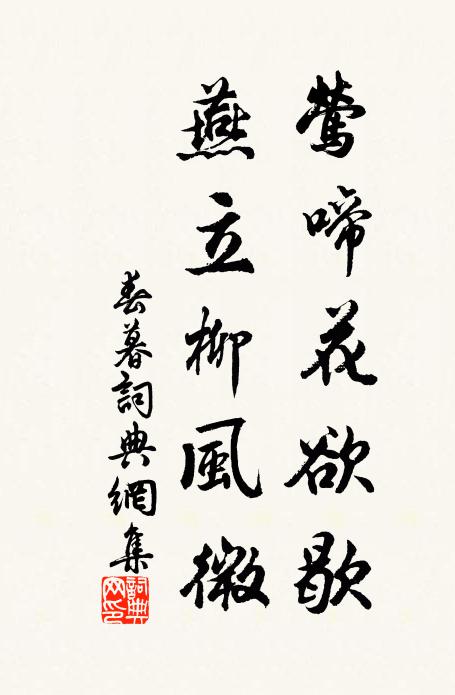 鶯啼花欲歇
燕立柳風微
春暮詞典網集
詞典網印